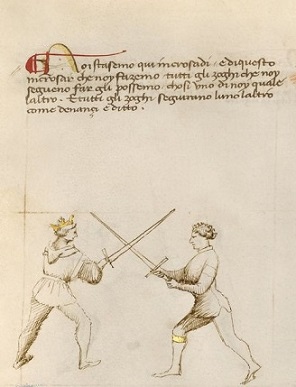 Noi stasemo qui incrosadi · e di questo
incrosar che noy fazemo tutti gli zoghi che noy
segueno far gli possemo chosi uno di noy quale
laltro · E tutti gli zoghi seguirano luno laltro
come denançi e ditto ·